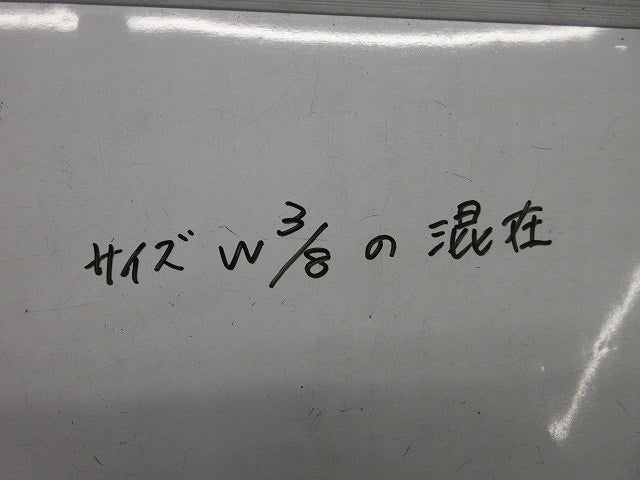 サイズ W 3/8 の 混在